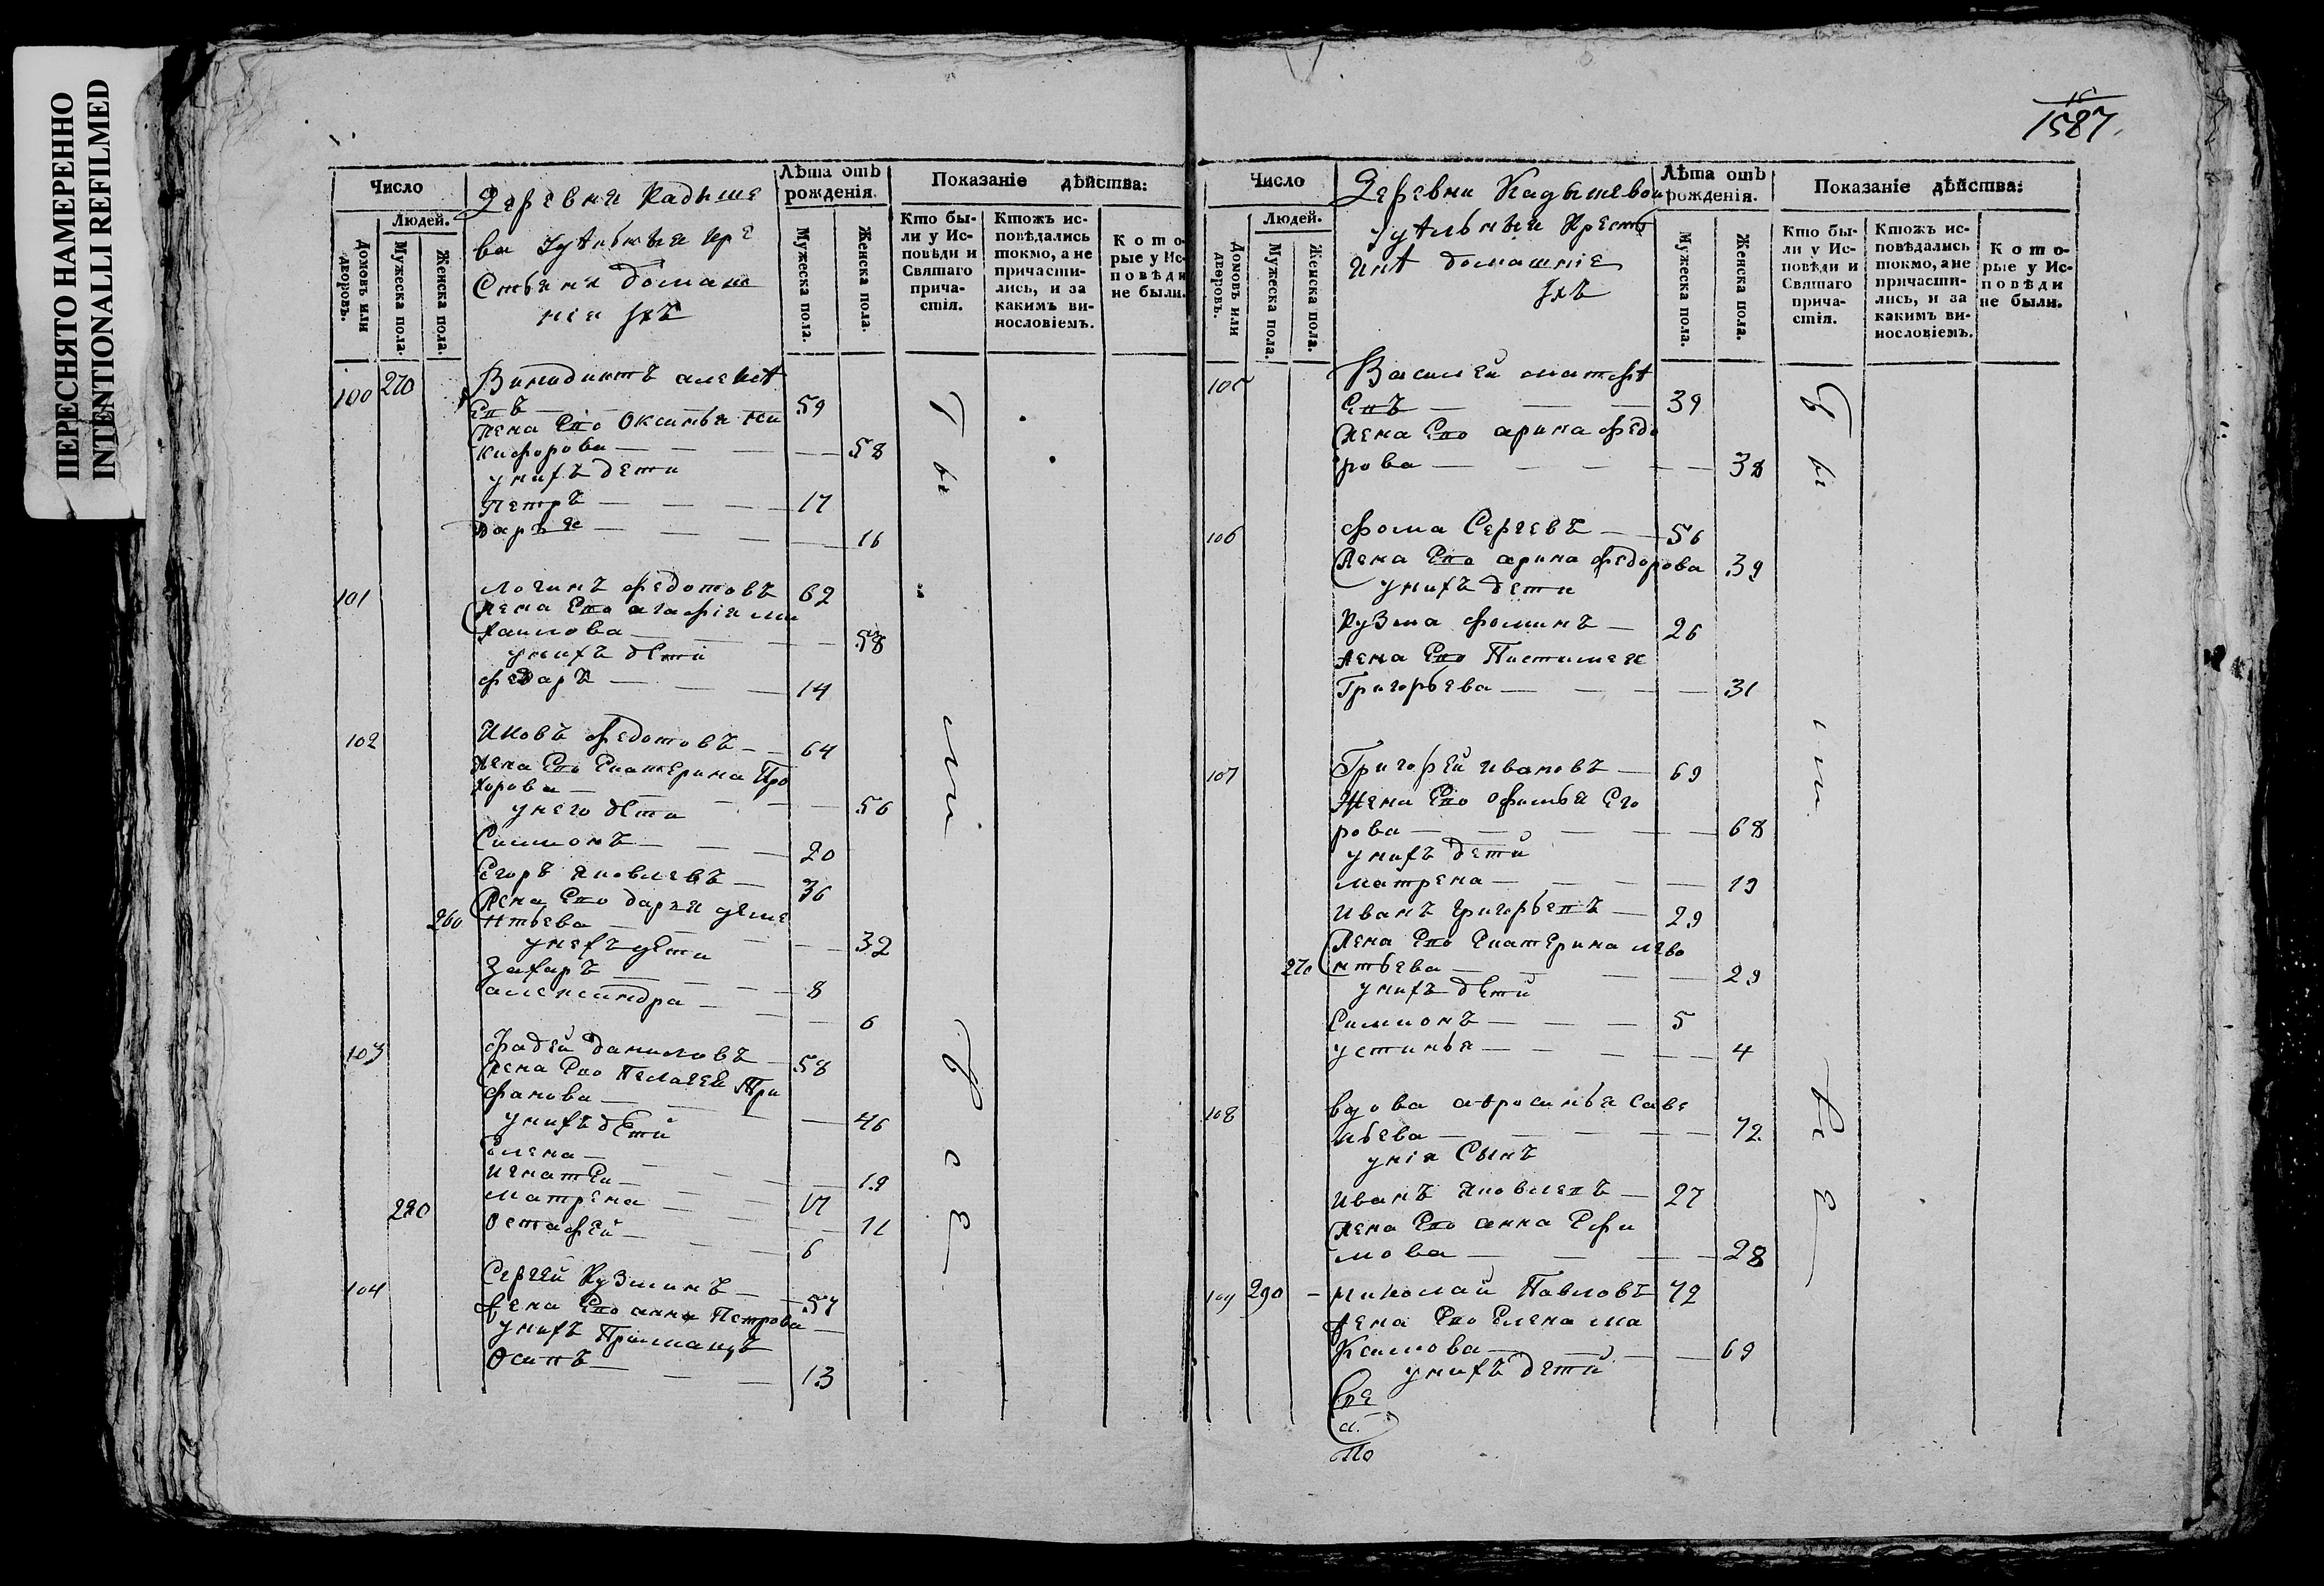 ПЕРЕСНЯТО НАМЕРЕННО
INTENTIONALLI REFILMED
1587
Число
Людей.
Домовъ или дворовъ.
Мужеска пола.
Женска пола.
Деревня Кадыше
ва удѣльныя кре
Стьяня домаш
нія ихъ
Лѣта отъ рожденія.
Мужеска пола.
Женска пола.
Показаніе дѣйства:
Кто бы-
ли у Ис-
повѣди и
Святаго
прича-
стія.
Ктожъ ис-
повѣдались
токмо, а не
причасти-
лись, и за
какимъ ви-
нословіемъ.
Кото-
рые у Ис-
повѣди
не были.
100 270 Винидиктъ алекѣ
евъ 59
жена Его Оксинья ни
кифорова 58
унихъ дети
Петръ 17
Дарья 16
101 логинъ федотовъ 62
жена Его агафія ми
хаилова 58
унихъ дети
федаръ 14
102 Иковъ федотовъ 64
жена Его Екатерина Про
хорова 56
унего дети
Симионъ 20
Егоръ яковлевъ 36
жена Его дарья
260 нтьева 32
унехъ дети
Захаръ 8
александра 6
103 фадей даниловъ 58
жена Его Пелагея Три
фанова 46
унихъ дети
Елена 19
Игнатеи 17
Матрена 11
280 Остафей 6
104 Сергей Кузминъ 57
жена Его анна Петрова
унихъ Приимацъ
Осипъ 13
Число
Людей.
Домовъ или дворовъ.
Мужеска пола.
Женска пола.
Деревни Кадышевои
удѣльныи Крестъ
инѣ домашніе
ихъ
Лѣта отъ рожденія.
Мужеска пола.
Женска пола.
Показаніе дѣйства:
Кто бы-
ли у Ис-
повѣди и
Святаго
прича-
стія.
Ктожъ ис-
повѣдались
токмо, а не
причасти-
лись, и за
какимъ ви-
нословіемъ.
Кото-
рые у Ис-
повѣди
не были.
105 Василей матфѣ
евъ 39
жена Его арина федо
рова 38
106 фома Сергевъ 56
жена Его арина федорова 39
унихъ дети
Кузма фоминъ 26
жена Его Пистимея
Григорьева 31
107 Григорей ивановъ 69
Жена Его офимья Его
рова 68
унихъ дети
матрена 19
иванъ григорьевъ 29
жена Его Екатерина лево
270 нтьева 29
унихъ дети
Симионъ 5
устинья 4
108 вдова афросинья Саве
льева 72
унія Сынъ
иванъ яковлевъ 27
жена Его анна Ефи
мова 28
109 290 николай Павловъ 72
жена Его Елена ма
Ксимова 69
унихъ дети